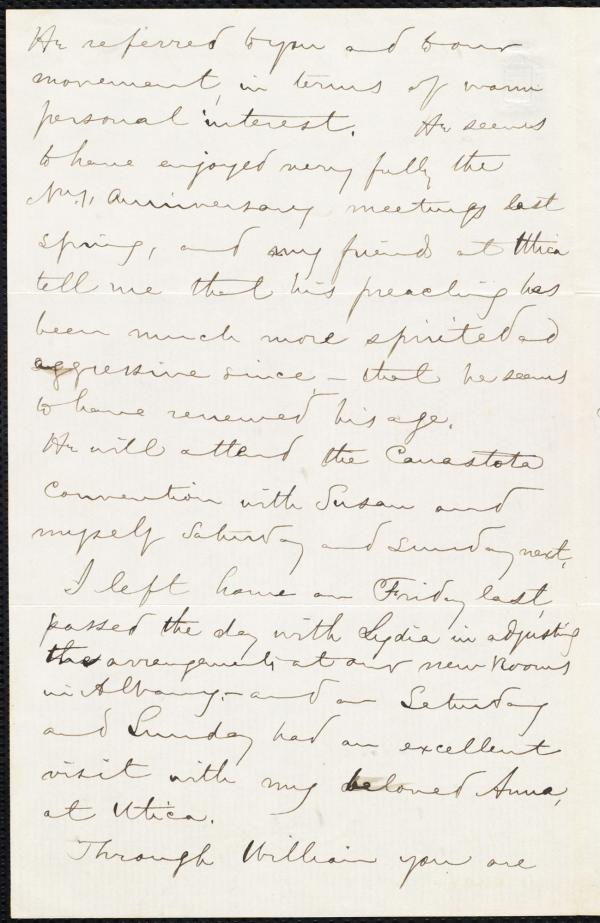 He referred to you and to our
movement, in terms of warm
personal interest. He seems
to have enjoyed very fully the
N.Y. Anniversary meetings last
spring, and my friends at Utica
tell me that his preaching has
been much more spirited and
aggressive since, – that he seems
to have renewed his age.
He will attend the Canastota
Convention with Susan and
myself Saturday and Sunday next.
I left home on Friday last,
passed the day with Lydia in adjusting
the arrangements at our new Rooms
in Albany, – and on Saturday
and Sunday had an excellent
visit with my beloved Anna,
at Utica.
Through William you are